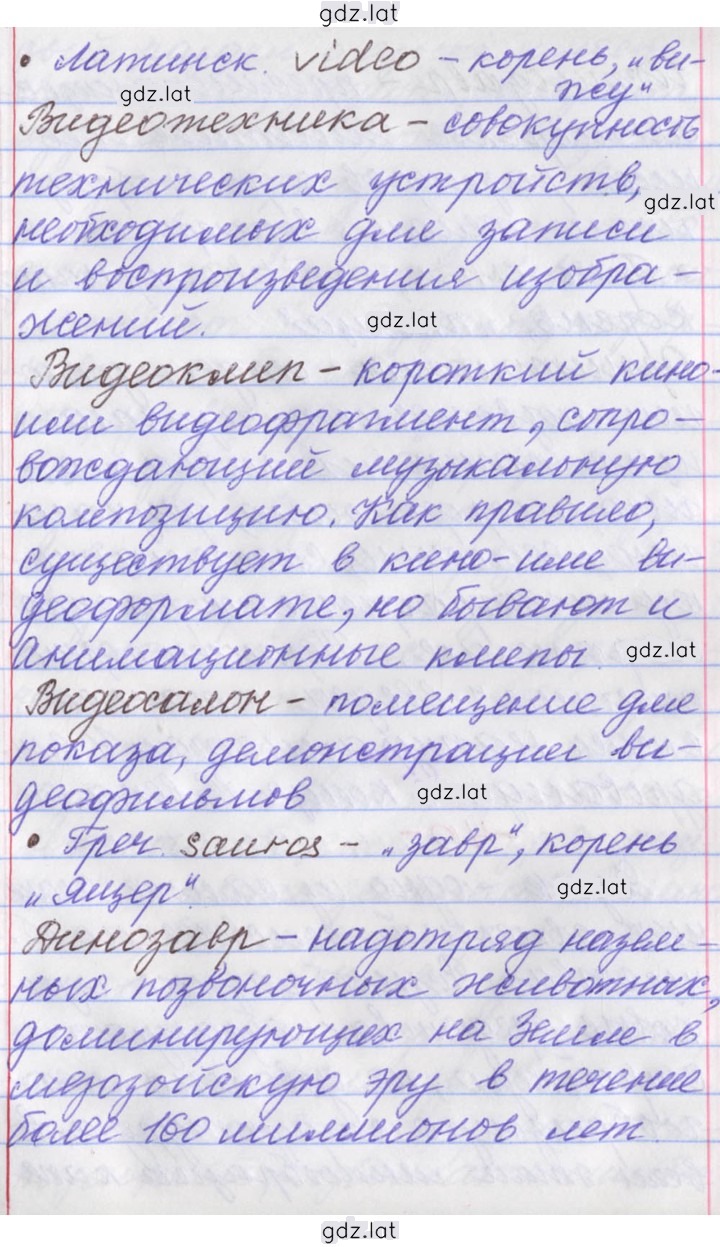 gdz.lat
• Латинск. video – корень, „ви-
жу“
gdz.lat
Видеотехника – совокупность
технических устройств,
gdz.lat
необходимых для записи
и воспроизведения изобра-
жений.
gdz.lat
Видеоклип – короткий кино-
или видеофрагмент, сопро-
вождающий музыкальную
композицию. Как правило,
существует в кино-или ви-
деоформате, но бывают и
анимационные клипы.
gdz.lat
Видеосалон – помещение для
показа, демонстрации ви-
деофильмов
gdz.lat
• Греч. sauros – „завр“, корень
„ящер“
gdz.lat
Динозавр – надотряд назем-
ных позвоночных животных,
доминирующих на Земле в
мезозойскую эру в течение
более 160 миллионов лет.
gdz.lat